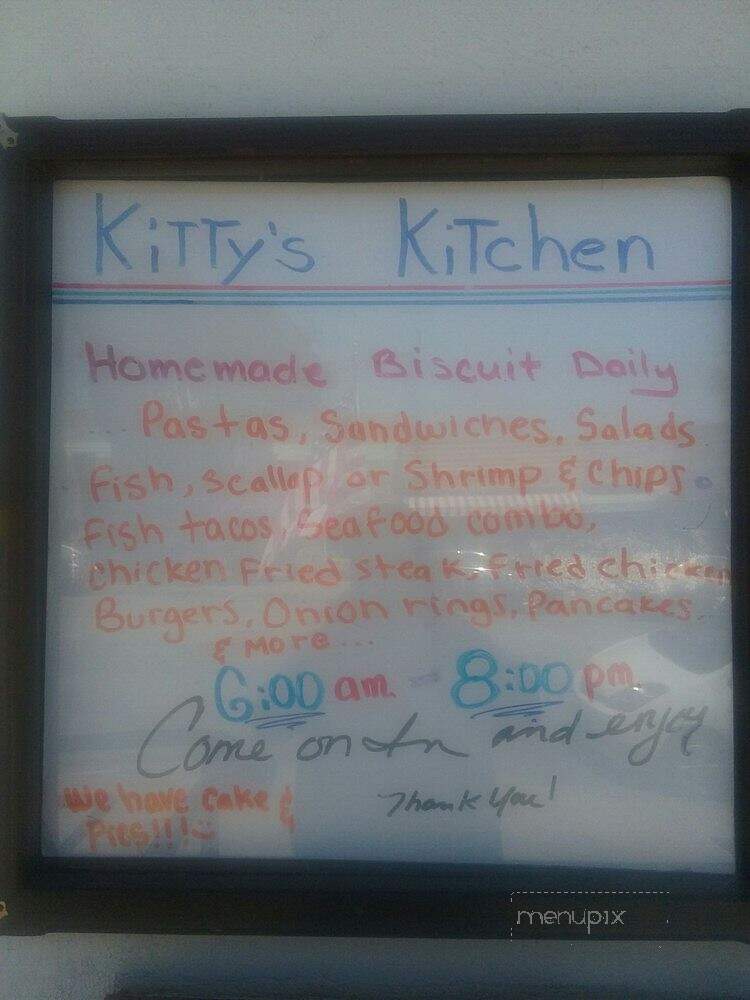 KiTTy's KiTchen
Homemade Biscuit Daily
Pastas, Sandwiches, Salads
Fish, scallop or Shrimp & Chips
Fish tacos, Seafood combo,
Chicken Fried steak, Fried chicken
Burgers, Onion rings, Pancakes,
& More...
6:00 am. - 8:00 pm.
Come on In and enjoy
We have cake &
Pies!!!
Thank You!
menupix